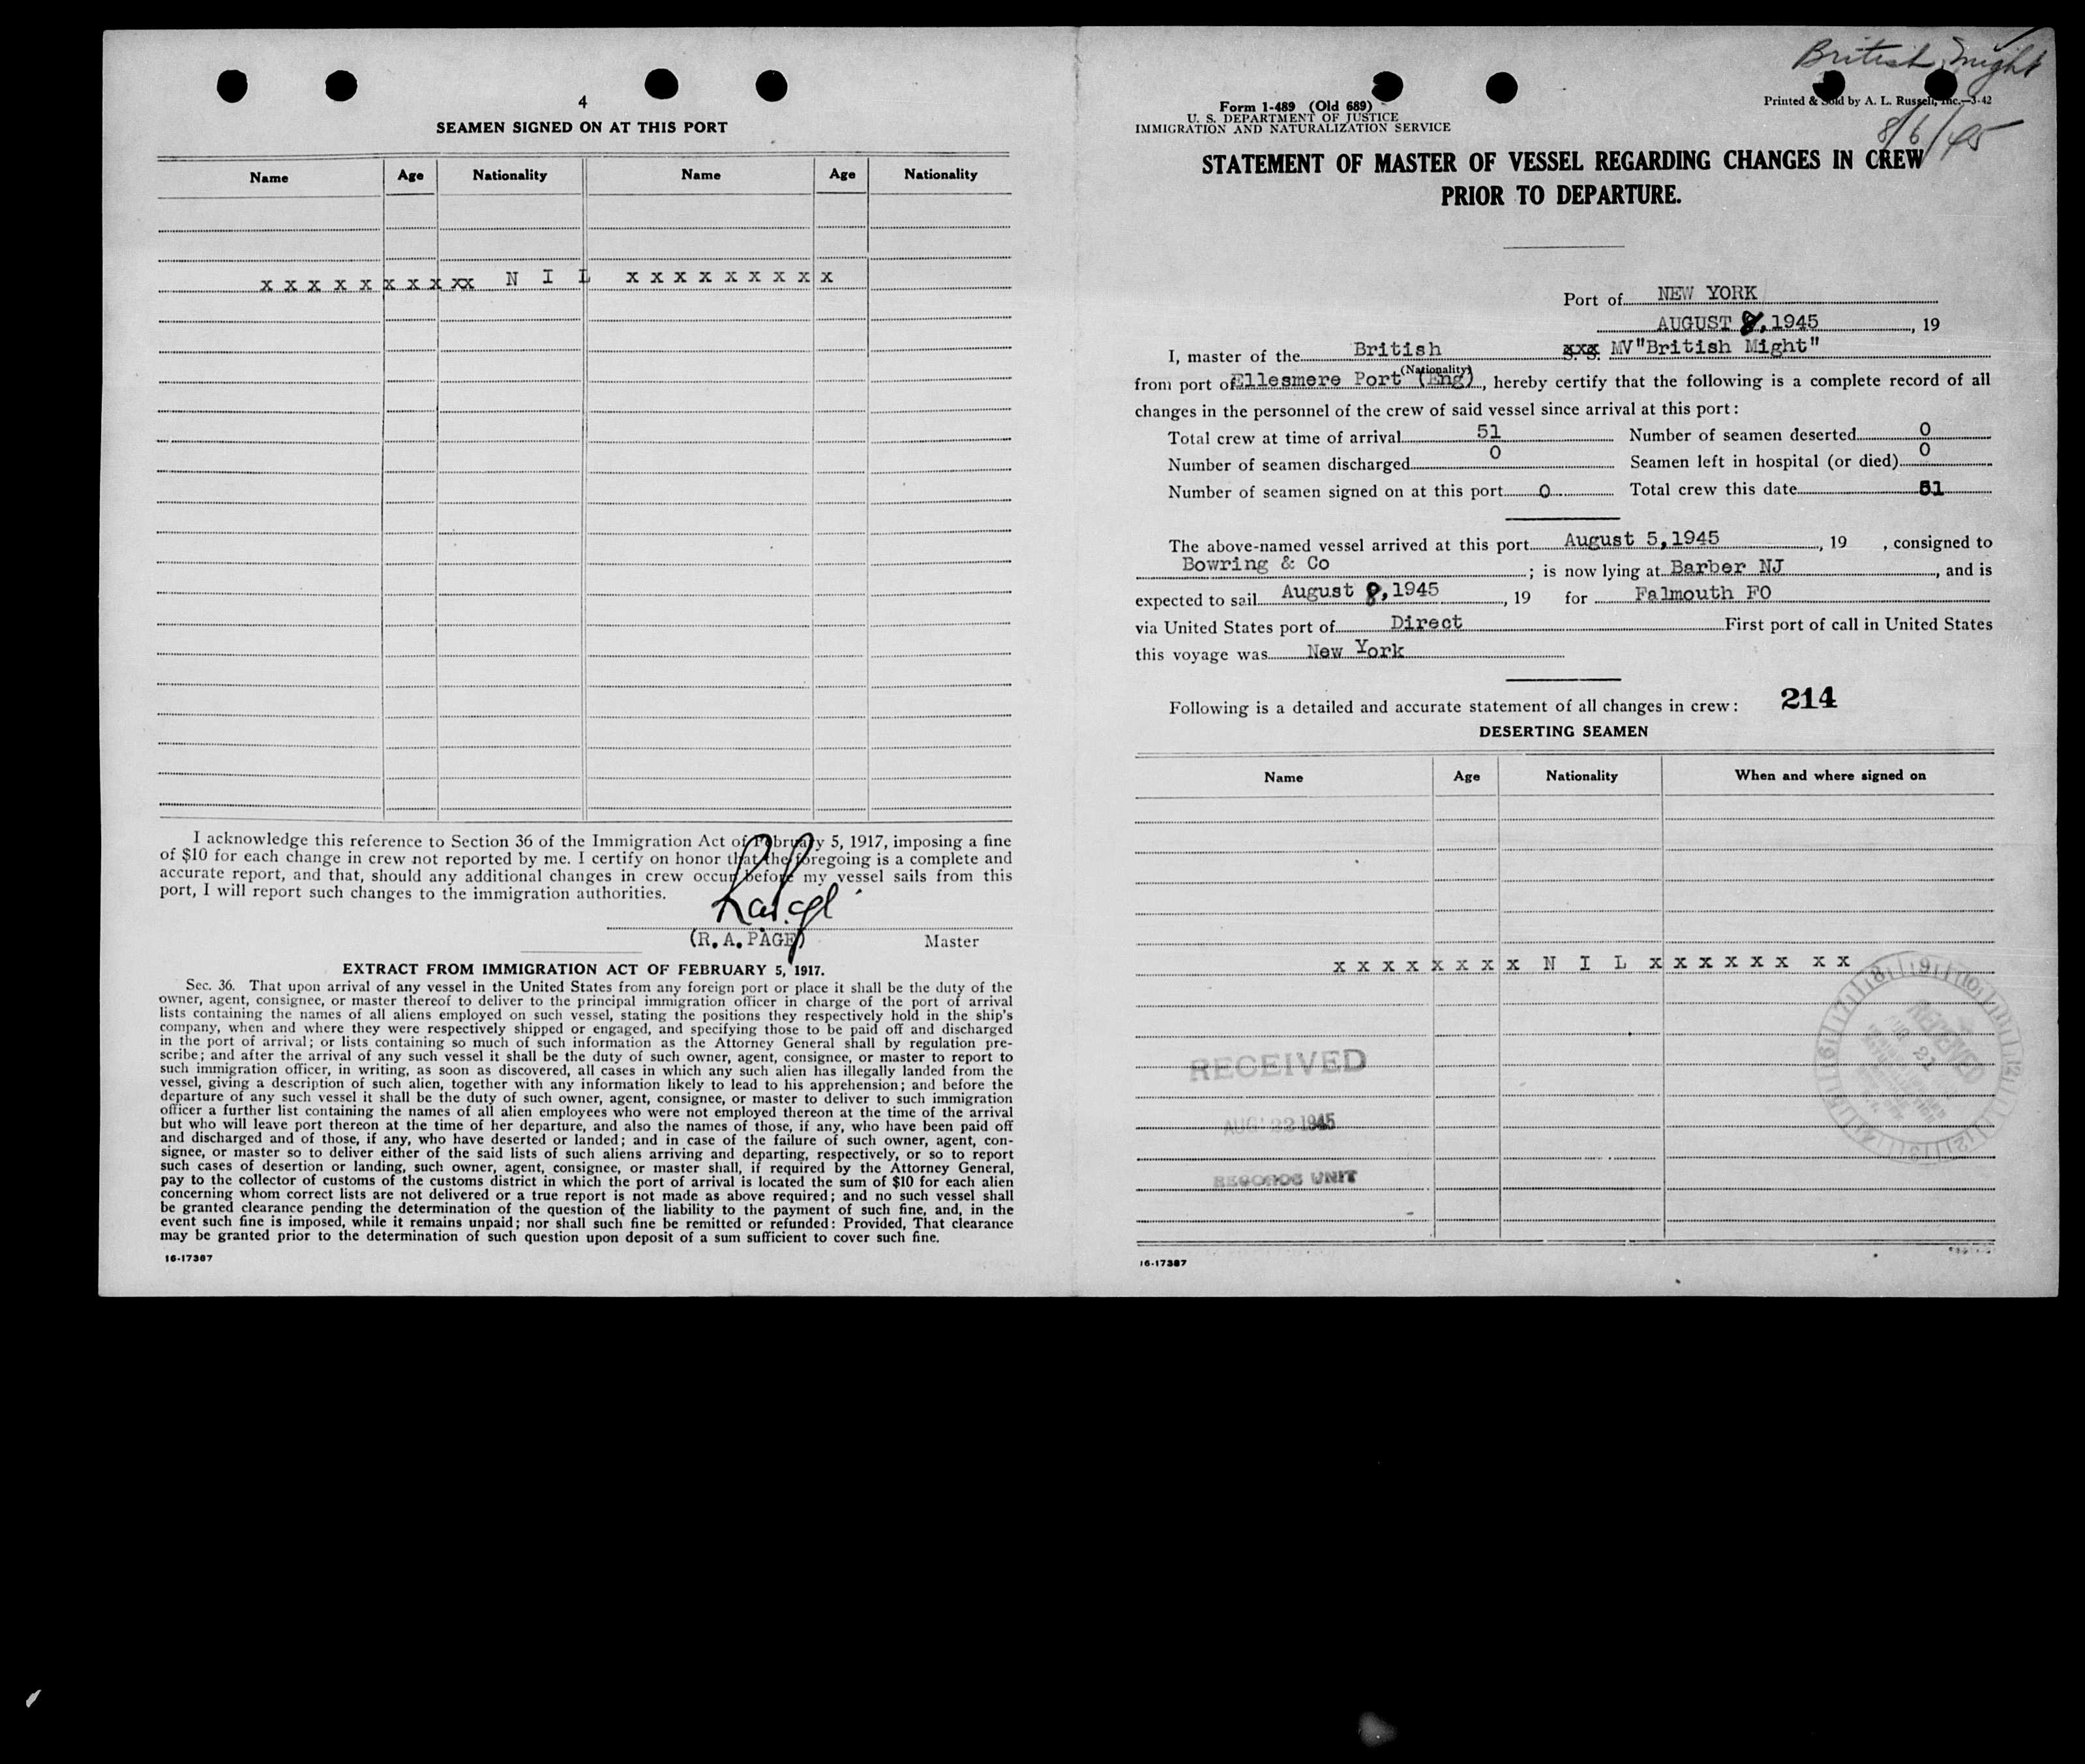 4
SEAMEN SIGNED ON AT THIS PORT
Name Age Nationality Name Age Nationality
x x x x x x x x xx N I L x x x x x x x x x
I acknowledge this reference to Section 36 of the Immigration Act of February 5, 1917, imposing a fine
of $10 for each change in crew not reported by me. I certify on honor that the foregoing is a complete and
accurate report, and that, should any additional changes in crew occur before my vessel sails from this
port, I will report such changes to the immigration authorities.
(R. A. PAGE) Master
EXTRACT FROM IMMIGRATION ACT OF FEBRUARY 5, 1917.
Sec. 36. That upon arrival of any vessel in the United States from any foreign port or place it shall be the duty of the
owner, agent, consignee, or master thereof to deliver to the principal immigration officer in charge of the port of arrival
lists containing the names of all aliens employed on such vessel, stating the positions they respectively hold in the ship's
company, when and where they were respectively shipped or engaged, and specifying those to be paid off and discharged
in the port of arrival; or lists containing so much of such information as the Attorney General shall by regulation pre-
scribe; and after the arrival of any such vessel it shall be the duty of such owner, agent, consignee, or master to report to
such immigration officer, in writing, as soon as discovered, all cases in which any such alien has illegally landed from the
vessel, giving a description of such alien, together with any information likely to lead to his apprehension; and before the
departure of any such vessel it shall be the duty of such owner, agent, consignee, or master to deliver to such immigration
officer a further list containing the names of all alien employees who were not employed thereon at the time of the arrival
but who will leave port thereon at the time of her departure, and also the names of those, if any, who have been paid off
and discharged and of those, if any, who have deserted or landed; and in case of the failure of such owner, agent, con-
signee, or master so to deliver either of the said lists of such aliens arriving and departing, respectively, or so to report
such cases of desertion or landing, such owner, agent, consignee, or master shall, if required by the Attorney General,
pay to the collector of customs of the customs district in which the port of arrival is located the sum of $10 for each alien
concerning whom correct lists are not delivered or a true report is not made as above required; and no such vessel shall
be granted clearance pending the determination of the question of the liability to the payment of such fine, and, in the
event such fine is imposed, while it remains unpaid; nor shall such fine be remitted or refunded: Provided, That clearance
may be granted prior to the determination of such question upon deposit of a sum sufficient to cover such fine.
16-17387
British Might
8/6/45
Form 1-489 (Old 689)
U. S. DEPARTMENT OF JUSTICE
IMMIGRATION AND NATURALIZATION SERVICE
Printed & Sold by A. L. Russell, Inc.—3-42
STATEMENT OF MASTER OF VESSEL REGARDING CHANGES IN CREW
PRIOR TO DEPARTURE.
Port of NEW YORK
AUGUST 8, 1945, 19
I, master of the British xxx MV "British Might"
(Nationality)
from port of Ellesmere Port (Eng), hereby certify that the following is a complete record of all
changes in the personnel of the crew of said vessel since arrival at this port:
Total crew at time of arrival 51 Number of seamen deserted 0
Number of seamen discharged 0 Seamen left in hospital (or died) 0
Number of seamen signed on at this port 0 Total crew this date 51
The above-named vessel arrived at this port August 5, 1945, 19 , consigned to
Bowring & Co; is now lying at Barber NJ, and is
expected to sail August 8, 1945, 19 for Falmouth FO
via United States port of Direct First port of call in United States
this voyage was New York
Following is a detailed and accurate statement of all changes in crew: 214
DESERTING SEAMEN
Name Age Nationality When and where signed on
x x x x x x x x N I L x x x x x x x x
RECEIVED
AUG 22 1945
RECORDS UNIT
16-17387